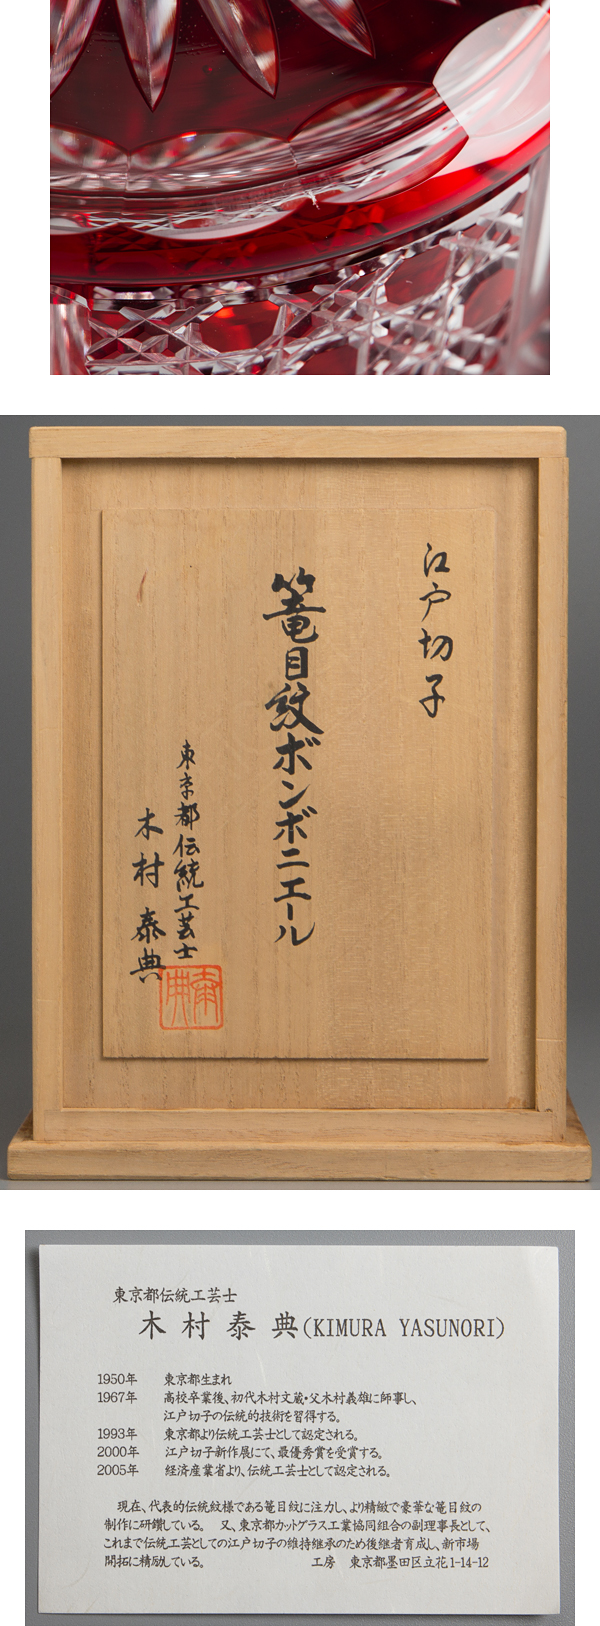 江戸切子
篭目紋ボンボニエール
東京都伝統工芸士
木村泰典
泰典
東京都伝統工芸士
木村泰典(KIMURA YASUNORI)
1950年 東京都生まれ
1967年 高校卒業後、初代木村文蔵・父木村義雄に師事し、
江戸切子の伝統的技術を習得する。
1993年 東京都より伝統工芸士として認定される。
2000年 江戸切子新作展にて、最優秀賞を受賞する。
2005年 経済産業省より、伝統工芸士として認定される。
現在、代表的伝統紋様である篭目紋に注力し、より精緻で豪華な篭目紋の
制作に研鑽している。 又、東京都カットグラス工業協同組合の副理事長として、
これまで伝統工芸としての江戸切子の維持継承のため後継者育成し、新市場
開拓に精励している。 工房 東京都墨田区立花1-14-12